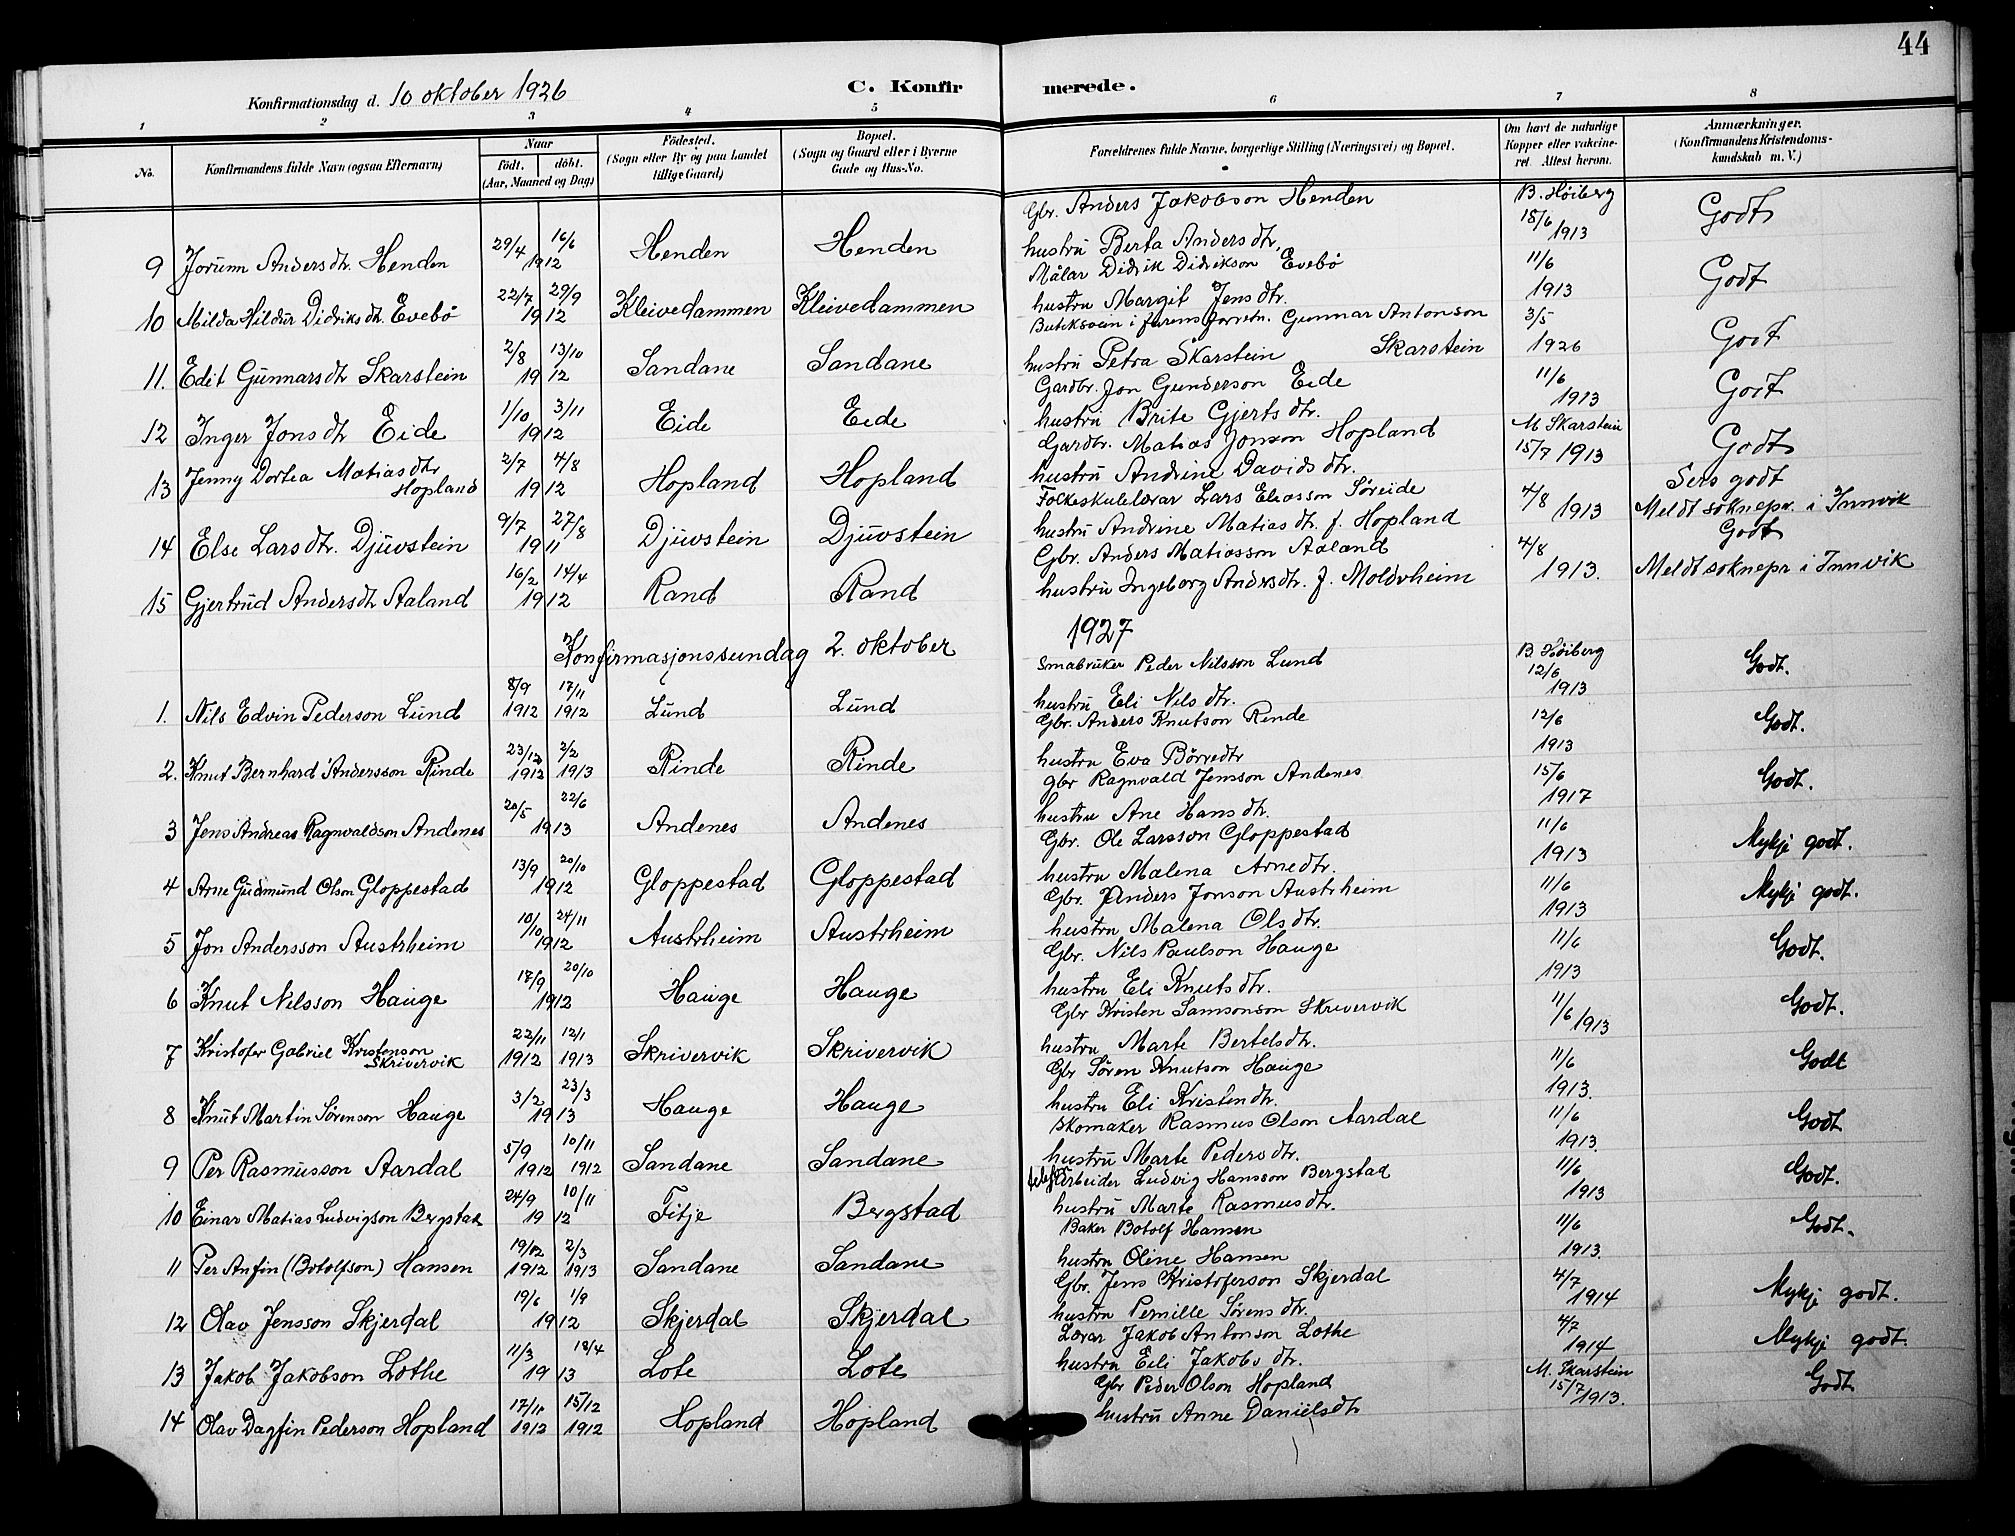 44
Konfirmationsdag d. 10 oktober 1926
C. Konfirmerede.
1 2 3 4 5 6 7 8
No. Konfirmandens fulde Navn (ogsaa Efternavn) Naar födt. döbt. (Aar, Maaned og Dag) Födested. (Sogn eller By og paa Landet tillige Gaard) Bopæl. (Sogn og Gaard eller i Byerne Gade og Hus-No. Forældrenes fulde Navne, borgerlige Stilling (Næringsvei) og Bopæl. Om havt de naturlige Kopper eller vakcineret. Attest herom. Anmærkninger. (Konfirmandens Kristendomskundskab m. V.)
Gbr. Anders Jakobson Henden B. Höiberg Godt
9 Jorunn Andersdtr. Henden 29/4 16/6 1912 Henden Henden hustru Berta Andersdtr. 18/6 1913
Målar Didrik Didrikson Evebö 11/6 Godt
10 Milda Hildur Didriksdt. Evebö 22/7 29/9 1912 Kleivedammen Kleivedammen hustru Margit Jensdtr. 1913
Butiksvein i farens forretn. Gunnar Antonson 3/5 Godt
11. Edit Gunnarsdtr Skarstein 2/8 13/10 1912 Sandane Sandane hustru Petra Skarstein Skarstein 1926
Gardbr. Jon Gunderson Eide 11/6 Godt
12 Inger Jonsdtr Eide 1/10 3/11 1912 Eide Eide hustru Brite Gjertsdtr. 1913
Gardbr. Matias Jonson Hopland M Skarstein Godt
13 Jenny Dortea Matiasdtr Hopland 2/7 4/8 1912 Hopland Hopland hustru Andrine Davidsdtr. 15/7 1913
Folkeskulelærar Lars Eliasson Söreide 4/8 Sers godt
14 Else Larsdtr. Djuvstein 9/7 27/8 1911 Djuvstein Djuvstein hustru Andrine Matiasdtr. f. Hopland 1913 Meldt soknepr. i Innvik
Gbr. Anders Matiasson Aaland 4/8 Godt
15 Gjertrud Andersdtr Aaland 16/2 14/4 1912 Rand Rand hustru Ingeborg Andersdtr. f. Moldvheim 1913. Meldt soknepr i Innvik
Konfirmasjonssundag 2. oktober 1927
Smabruker Peder Nilsson Lund B. Höiberg Godt.
1. Nils Edvin Pederson Lund 8/9 1912 17/11 1912 Lund Lund hustru Eli Nilsdtr. 12/6 1913
Gbr. Anders Knutson Rinde 12/6 Godt.
2. Knut Bernhard Andersson Rinde 23/12 1912 2/2 1913 Rinde Rinde hustru Eva Börredtr 1913
gbr Ragnvald Jensson Andenes 15/6 Godt.
3 Jens Andreas Ragnvaldson Andenes 20/5 22/6 1913 Andenes Andenes hustru Ane Hansdtr. 1917
Gbr. Ole Larsson Gloppestad 11/6 Mykje godt.
4 Arne Gudmund Olson Gloppestad 13/9 20/10 1912 Gloppestad Gloppestad hustru Malena Arnedtr. 1913
Gbr. Anders Jonson Austrheim 11/6 Mykje godt.
5 Jon Andersson Austrheim 10/10 24/11 1912 Austrheim Austrheim hustru Malena Olsdtr. 1913
Gbr. Nils Paulson Hauge 11/6 Godt.
6 Knut Nilsson Hauge 17/9 20/10 1912 Hauge Hauge hustru Eli Knutsdtr. 1913
Gbr Kristen Samsonson Skrivervik 11/6 Godt.
7 Kristofer Gabriel Kristenson Skrivervik 22/11 1912 12/1 1913 Skrivervik Skrivervik hustru Marte Bertelsdtr. 1913
Gbr Sören Knutson Hauge 11/6 Godt
8 Knut Martin Sörenson Hauge 3/2 23/3 1913 Hauge Hauge hustru Eli Kristendtr. 1913.
Skomaker Rasmus Olson Aardal 11/6 Godt
9 Per Rasmusson Aardal 5/9 1912 10/11 1912 Sandane Sandane hustru Marte Pedersdtr. 1913.
Arbeider Ludvig Hansson Bergstad 11/6 Godt.
10 Einar Matias Ludvigson Bergstad 24/9 10/11 1912 Fitje Bergstad hustru Marte Rasmusdtr. 1913
Baker Botolf Hansen 11/6 Godt.
11 Per Anfin (Botolfson) Hansen 19/12 1912 2/3 1913 Sandane Sandane hustru Oline Hansen 1913.
Gbr. Jens Kristoferson Skjerdal 4/7 Mykje godt.
12 Olav Jensson Skjerdal 19/6 1/9 1912 Skjerdal Skjerdal hustru Pernille Sörensdtr. 1914
Lærar Jakob Antonson Lothe 4/7 Mykje godt.
13 Jakob Jakobson Lothe 11/3 18/4 1913 Lote Lote hustru Eli Jakobsdtr. 1914
Gbr Peder Olson Hopland M. Skarstein Godt
14 Olav Dagfin Pederson Hopland 17/11 1912 15/12 1912 Hopland Hopland hustru Anne Danielsdtr 15/7 1913.